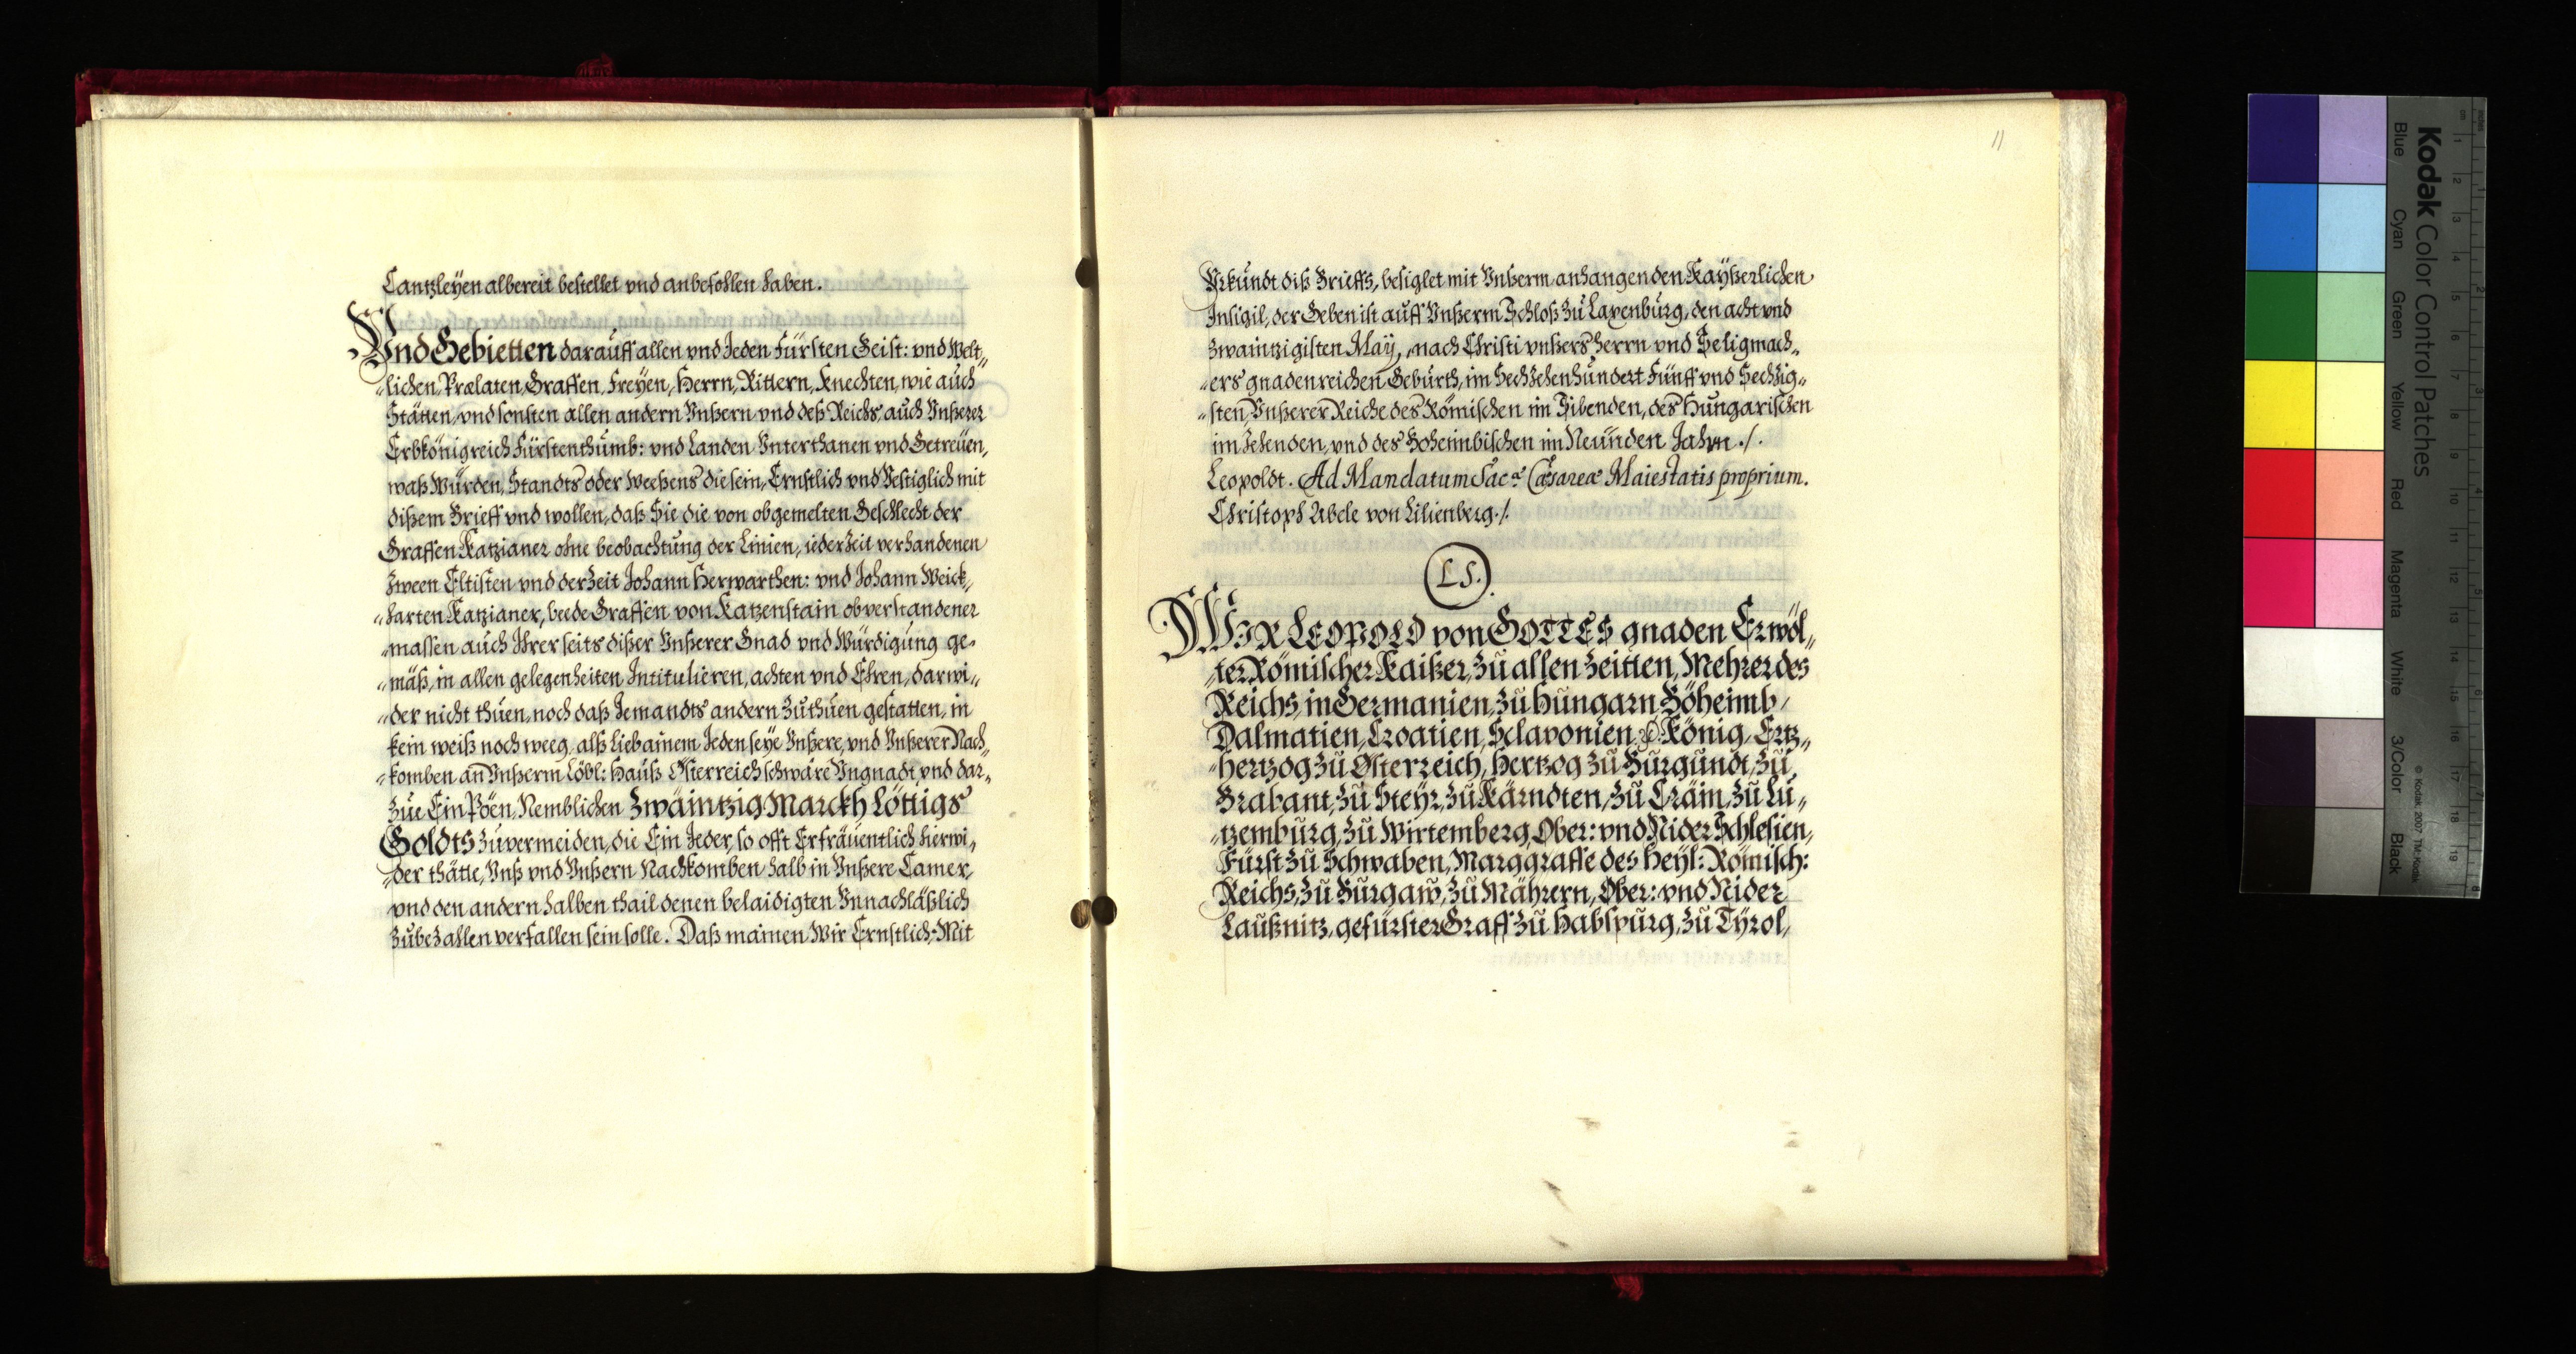 Cantzleÿen albereit bestellet vnd anbefohlen haben.
Vnd Gebietten darauff allen vnd Jeden Fürsten Geist: vnd Welt„
„lichen, Prælaten, Graffen, Freyen, Herrn, Rittern, Knechten, wie auch
Stätten, vnd sonsten allen andern Vnßern vnd deß Reichs, auch Vnßerer
Erbkönigreich Fürstenthumb: vnd Landen Vnterthanen vnd Getreüen,
waß Würden, Standts oder Weeßens die sein, Ernstlich vnd Vestiglich mit
dißem Brieff vnd wollen, daß Sie die von obgemelten Geschlecht der
Graffen Katzianer ohne beobachtung der Linien, iederzeit verhandenen
zween Eltisten vnd derzeit Johann Herwarthen: vnd Johann Weick„
„harten Katzianer, beede Graffen von Katzenstain obverstandener
„massen auch Ihrer seits dißer Vnßerer Gnad vnd Würdigung ge„
„mäß, in allen gelegenheiten Intitulieren, achten vnd Ehren, darwi„
„der nicht thuen, noch daß Jemandts andern zuthuen gestatten, in
kein weiß noch weeg, alß lieb ainem Jeden seye Vnßere, vnd Vnßerer Nach„
„komben an Vnßerm Löbl: Hauß Österreich schwäre Vngnadt, vnd dar„
zue Ein Pöen, Nemblichen Zwäintzig Marckh Löttigs
Goldts zuvermeiden, die Ein Jeder, so offt Er fräuentlich hierwi„
„der thätte, Vnß vnd Vnßern Nachkomben halb in Vnßere Camer,
vnd den andern halben thail denen belaidigten Vnnachläßlich
zubezahlen verfallen sein solle. Daß mainen Wir Ernstlich; Mit
11
Vrkundt diß Brieffs, besiglet mit Vnßerm anhangenden Kayßerlichen
Insigil, der Geben ist auff Vnßerm Schloß zu Laxenburg, den acht vnd
zwaintzigisten Maÿ, nach Christi vnßers Herrn vnd Seligmach„
„ers gnadenreichen Geburth, im Sechzehenhundert Fünff vnd Sechzig„
„sten, Vnßerer Reiche des Römischen im Sibenden, des Hungarischen
im Zehenden, vnd des Boheimbischen im Neünden Jahrn ./.
Leopoldt. Ad Mandatum Sac:æ Cæsareæ Maiestatis proprium.
Christoph Abele von Lilienberg ./.
L S.
Wir Leopold von GOTTES gnaden Erwöl„
„ter Römischer Kaißer, zu allen Zeitten, Mehrer des
Reichs, in Germanien, zu Hungarn, Böheimb,
Dalmatien, Croatien, Sclavonien &c König, Ertz„
„hertzog zu Österreich, Hertzog zu Burgundt, zu
Brabant, zu Steÿr, zu Kärndten, zu Cräin, zu Lu„
„tzemburg, zu Wirtemberg, Ober: vnd Nider Schlesien,
Fürst zu Schwaben, Marggraffe des Heyl: Römisch:
Reichs, zu Burgaw, zu Mährern, Ober: vnd Nider
Laußnitz, gefürster Graff zu Habspurg, zu Tÿrol,
Kodak Color Control Patches
Blue
Cyan
Green
Yellow
Red
Magenta
White
3/Color
Black
© Kodak, 2007 TM: Kodak